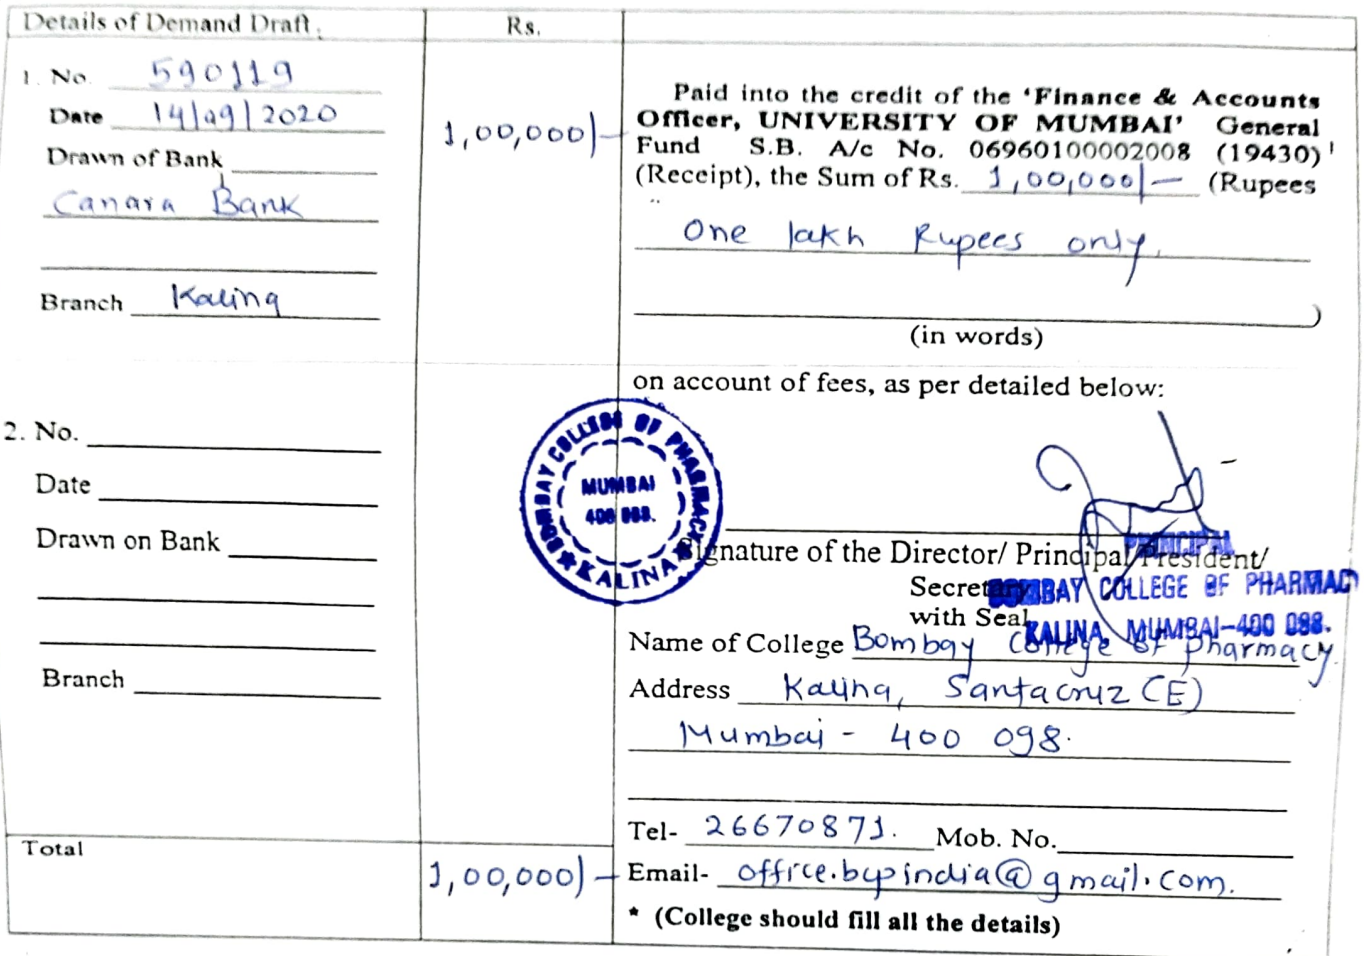 Details of Demand Draft.
Rs.
1. No. 590119
Date 14/09/2020
Drawn of Bank
Canara Bank
Branch Kalina
1,00,000/-
Paid into the credit of the ‘Finance & Accounts
Officer, UNIVERSITY OF MUMBAI’ General
Fund S.B. A/c No. 06960100002008 (19430)
(Receipt), the Sum of Rs. 1,00,000/- (Rupees
One lakh Rupees only.
)
(in words)
on account of fees, as per detailed below:
2. No.
Date
Drawn on Bank
Branch
BOMBAY COLLEGE OF PHARMACY
MUMBAI
400 098.
★ KALINA ★
Signature of the Director/ Principal/President/
PRINCIPAL
Secretary
BOMBAY COLLEGE OF PHARMAC
with Seal
KALINA, MUMBAI-400 098.
Name of College Bombay College of pharmacy
Address Kalina, Santacruz (E)
Mumbai - 400 098.
Tel- 26670871. Mob. No.
Total
1,00,000/-
Email- office.bcpindia@gmail.com.
* (College should fill all the details)